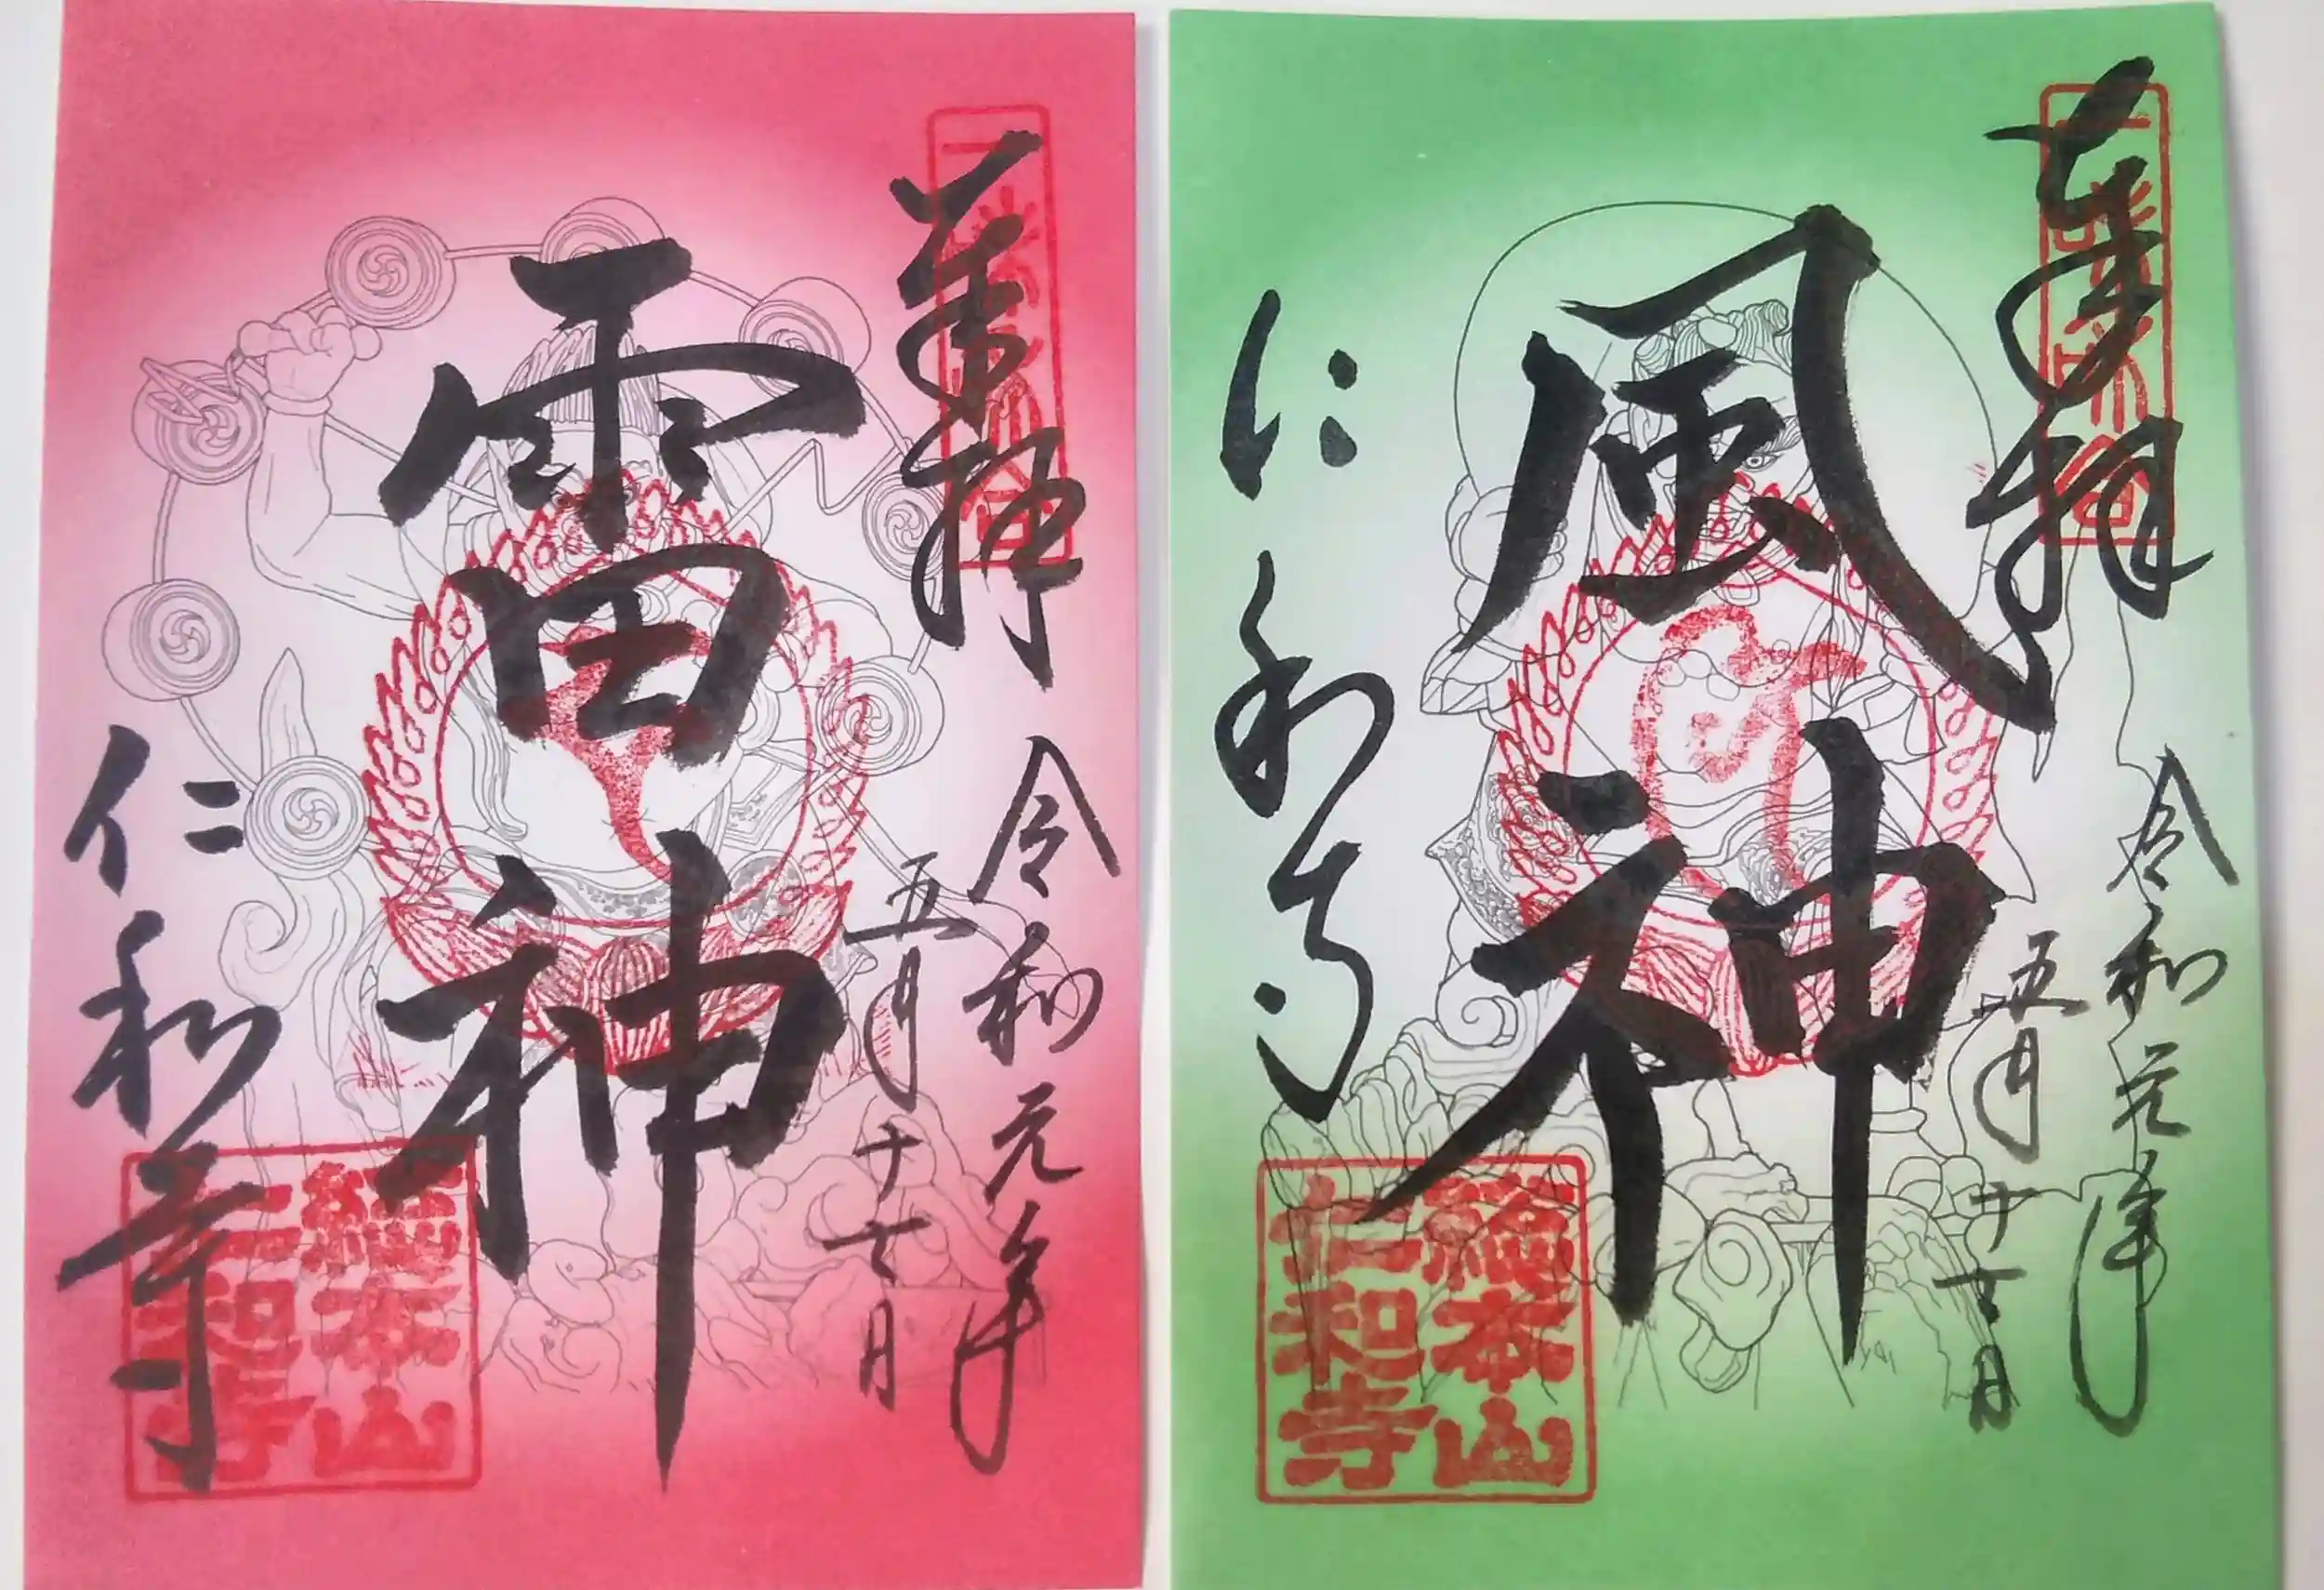 奉拝
令和元年
五月十七日
雷神
仁和寺
總本山
仁和寺
奉拝
令和元年
五月十七日
風神
仁和寺
總本山
仁和寺